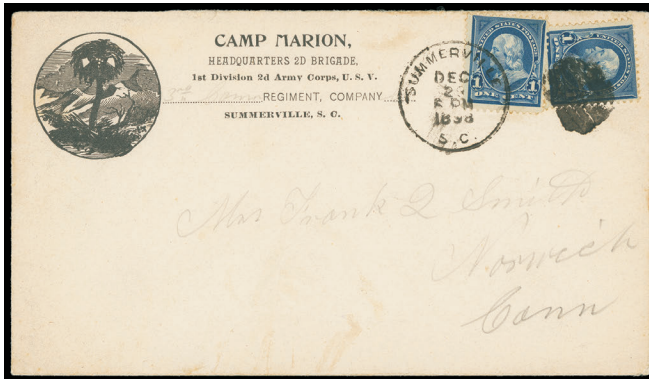 CAMP MARION,
HEADQUARTERS 2D BRIGADE,
1st Division 2d Army Corps, U. S. V.
REGIMENT, COMPANY
SUMMERVILLE, S. C.
SUMMERVILLE
DEC
2
PM
1898
S. C.
UNITED STATES POSTAGE
1 ONE CENT 1
1
Mrs Frank Q Smith
Norwich
Conn